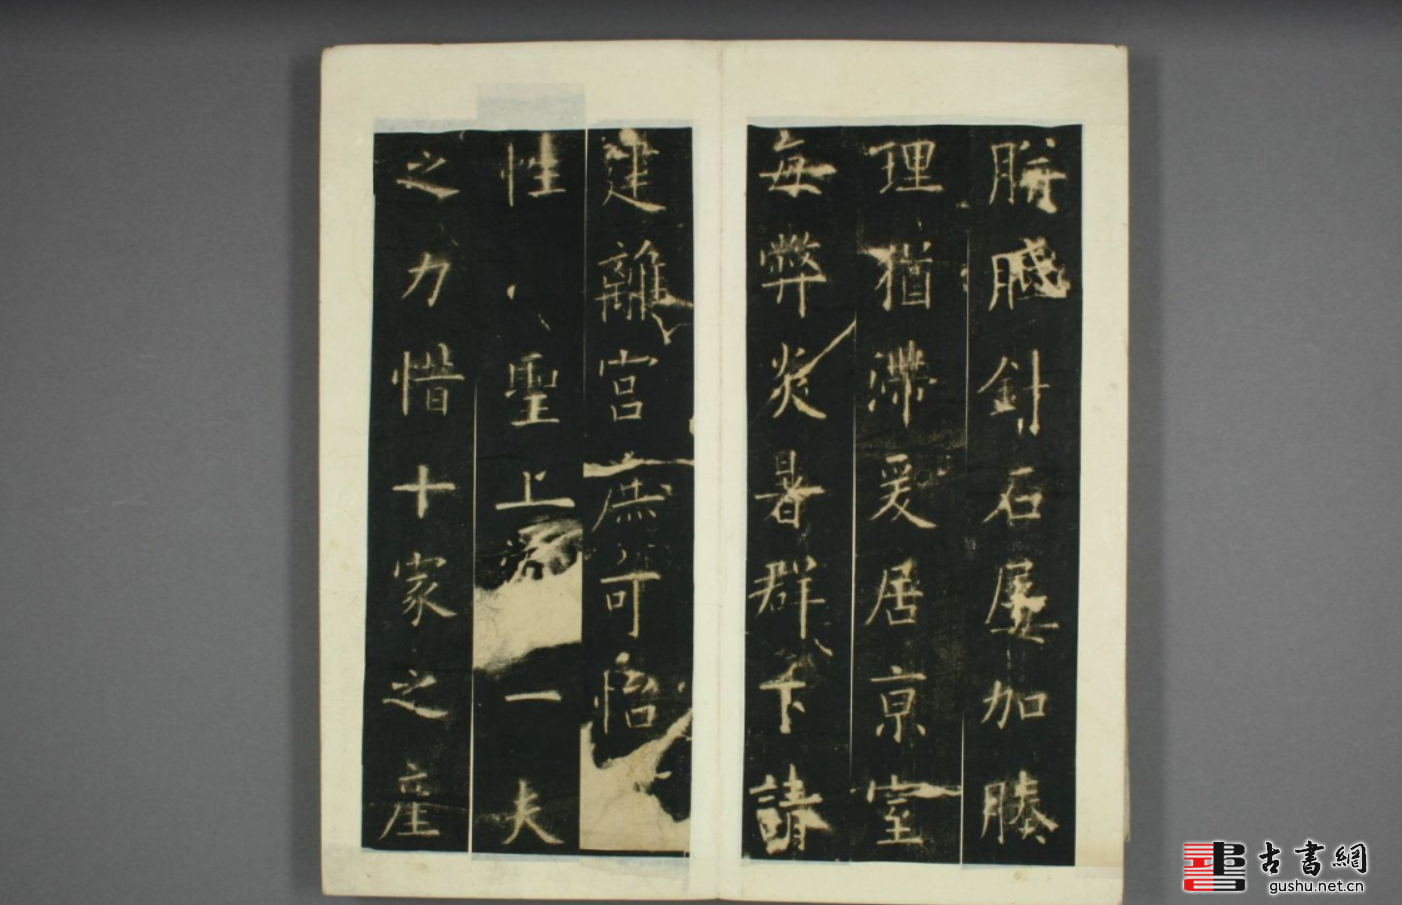 胼胝針石屢加腠
理猶滯爰居京室
每弊炎暑群下請
建離宮庶可怡
性聖上一夫
之力惜十家之產
古書網
gushu.net.cn